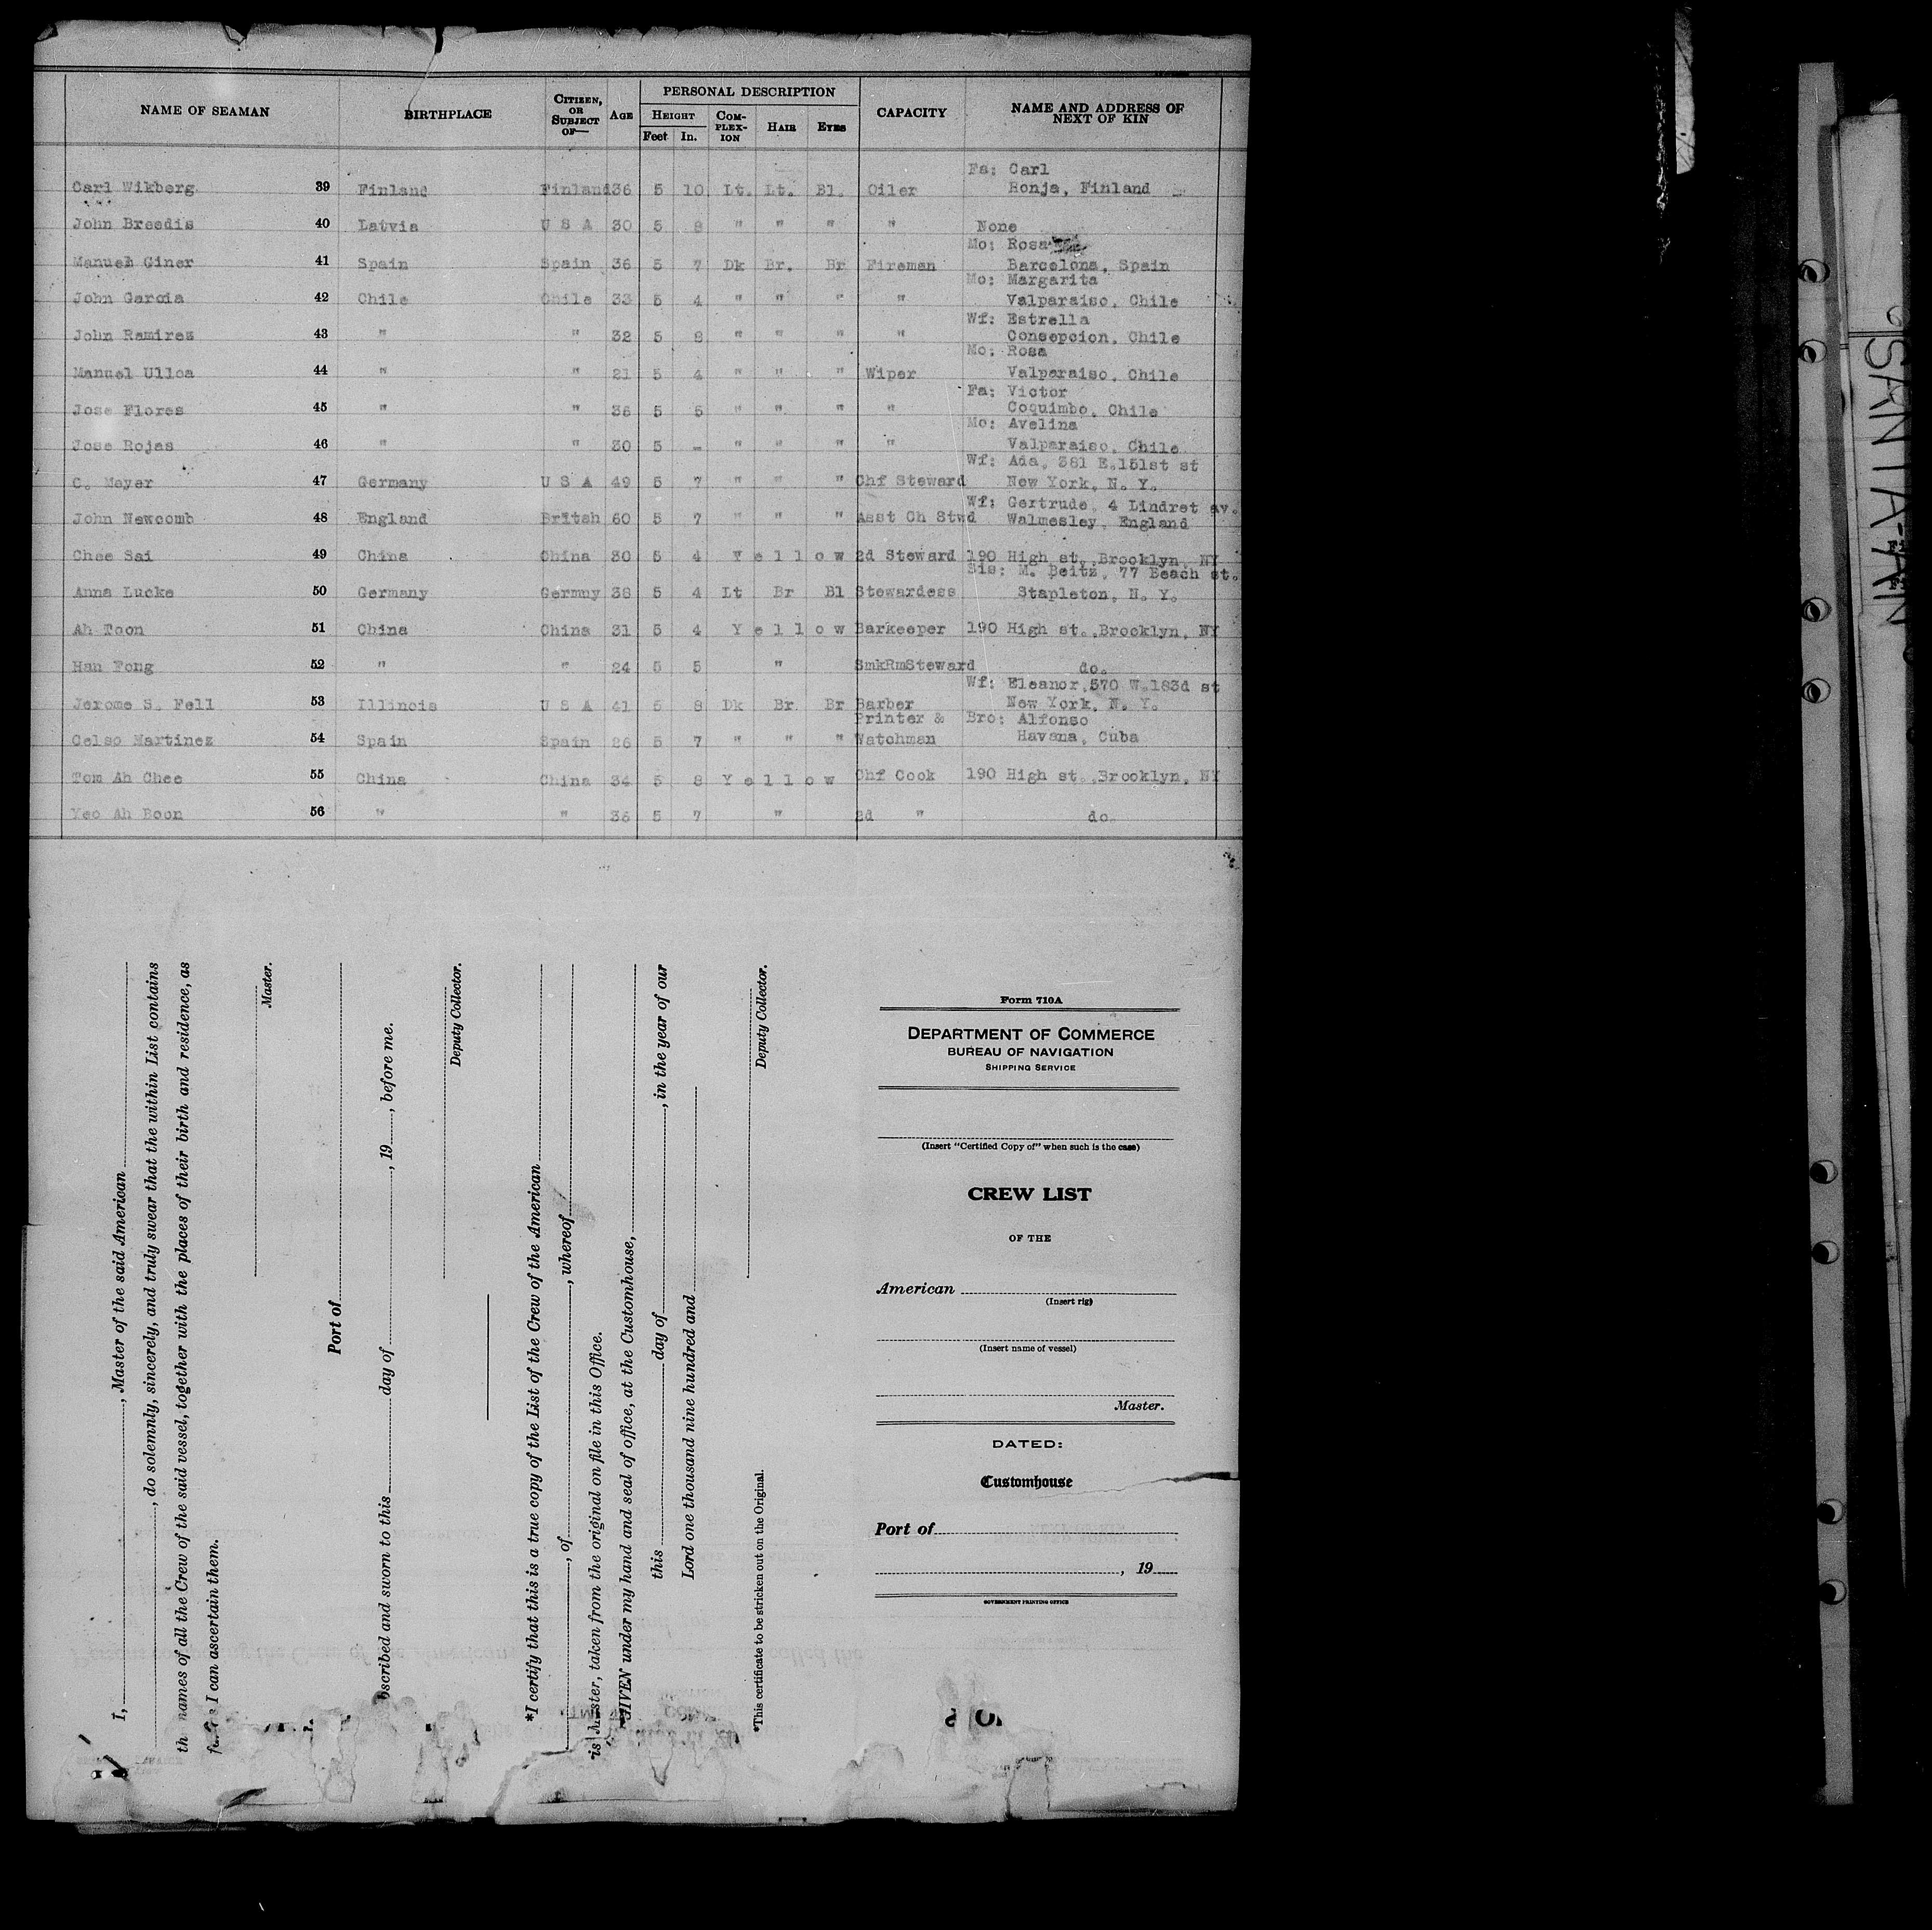 NAME OF SEAMAN BIRTHPLACE CITIZEN, OR SUBJECT OF— AGE PERSONAL DESCRIPTION CAPACITY NAME AND ADDRESS OF NEXT OF KIN
HEIGHT COM-PLEX-ION HAIR EYES
Feet In.
Fa: Carl
Carl Wikberg 39 Finland Finland 36 5 10 Lt. Lt. Bl. Oiler Ronja, Finland
John Breedis 40 Latvia U S A 30 5 8 " " " " None
Mo: Rosa
Manuel Giner 41 Spain Spain 36 5 7 Dk Br. Br Fireman Barcelona, Spain
Mo: Margarita
John Garcia 42 Chile Chile 33 5 4 " " " " Valparaiso, Chile
Wf: Estrella
John Ramirez 43 " " 32 5 8 " " " " Consepcion, Chile
Mo: Rosa
Manuel Ulloa 44 " " 21 5 4 " " " Wiper Valparaiso, Chile
Fa: Victor
Jose Flores 45 " " 36 5 5 " " " " Coquimbo, Chile
Mo: Avelina
Jose Rojas 46 " " 30 5 - " " " " Valparaiso, Chile
Wf: Ada, 381 E.151st st
C. Meyer 47 Germany U S A 49 5 7 " " " Chf Steward New York, N. Y.
Wf: Gertrude, 4 Lindret av.
John Newcomb 48 England Britsh 60 5 7 " " " Asst Ch Stwd Walmesley, England
Chee Sai 49 China China 30 5 4 Y e l l o w 2d Steward 190 High st., Brooklyn, NY
Sis: M. Beitz, 77 Beach st.
Anna Lucke 50 Germany Germny 38 5 4 Lt Br Bl Stewardess Stapleton, N. Y.
Ah Toon 51 China China 31 5 4 Y e l l o w Barkeeper 190 High st., Brooklyn, NY
Han Fong 52 " " 24 5 5 " SmkRmSteward do.
Wf: Eleanor, 570 W.183d st
Jerome S. Fell 53 Illinois U S A 41 5 8 Dk Br Br Barber New York, N. Y.
Printer & Bro: Alfonso
Celso Martinez 54 Spain Spain 26 5 7 " " " Watchman Havana, Cuba
Tom Ah Chee 55 China China 34 5 8 Y e l l o w Chf Cook 190 High st., Brooklyn, NY
Yeo Ah Boon 56 " " 36 5 7 " 2d " do.
I, , Master of the said American
, do solemnly, sincerely, and truly swear that the within List contains
the names of all the Crew of the said vessel, together with the places of their birth and residence, as
I can ascertain them.
Master.
Port of
bscribed and sworn to this day of , 19 , before me.
Deputy Collector.
*I certify that this is a true copy of the List of the Crew of the American
, of , whereof
is Master, taken from the original on file in this Office.
GIVEN under my hand and seal of office, at the Customhouse,
this day of , in the year of our
Lord one thousand nine hundred and
Deputy Collector.
*This certificate to be stricken out on the Original.
Form 710A
DEPARTMENT OF COMMERCE
BUREAU OF NAVIGATION
SHIPPING SERVICE
(Insert "Certified Copy of" when such is the case)
CREW LIST
OF THE
American
(Insert rig)
(Insert name of vessel)
Master.
DATED:
Customhouse
Port of
, 19
GOVERNMENT PRINTING OFFICE
SANTA ANA